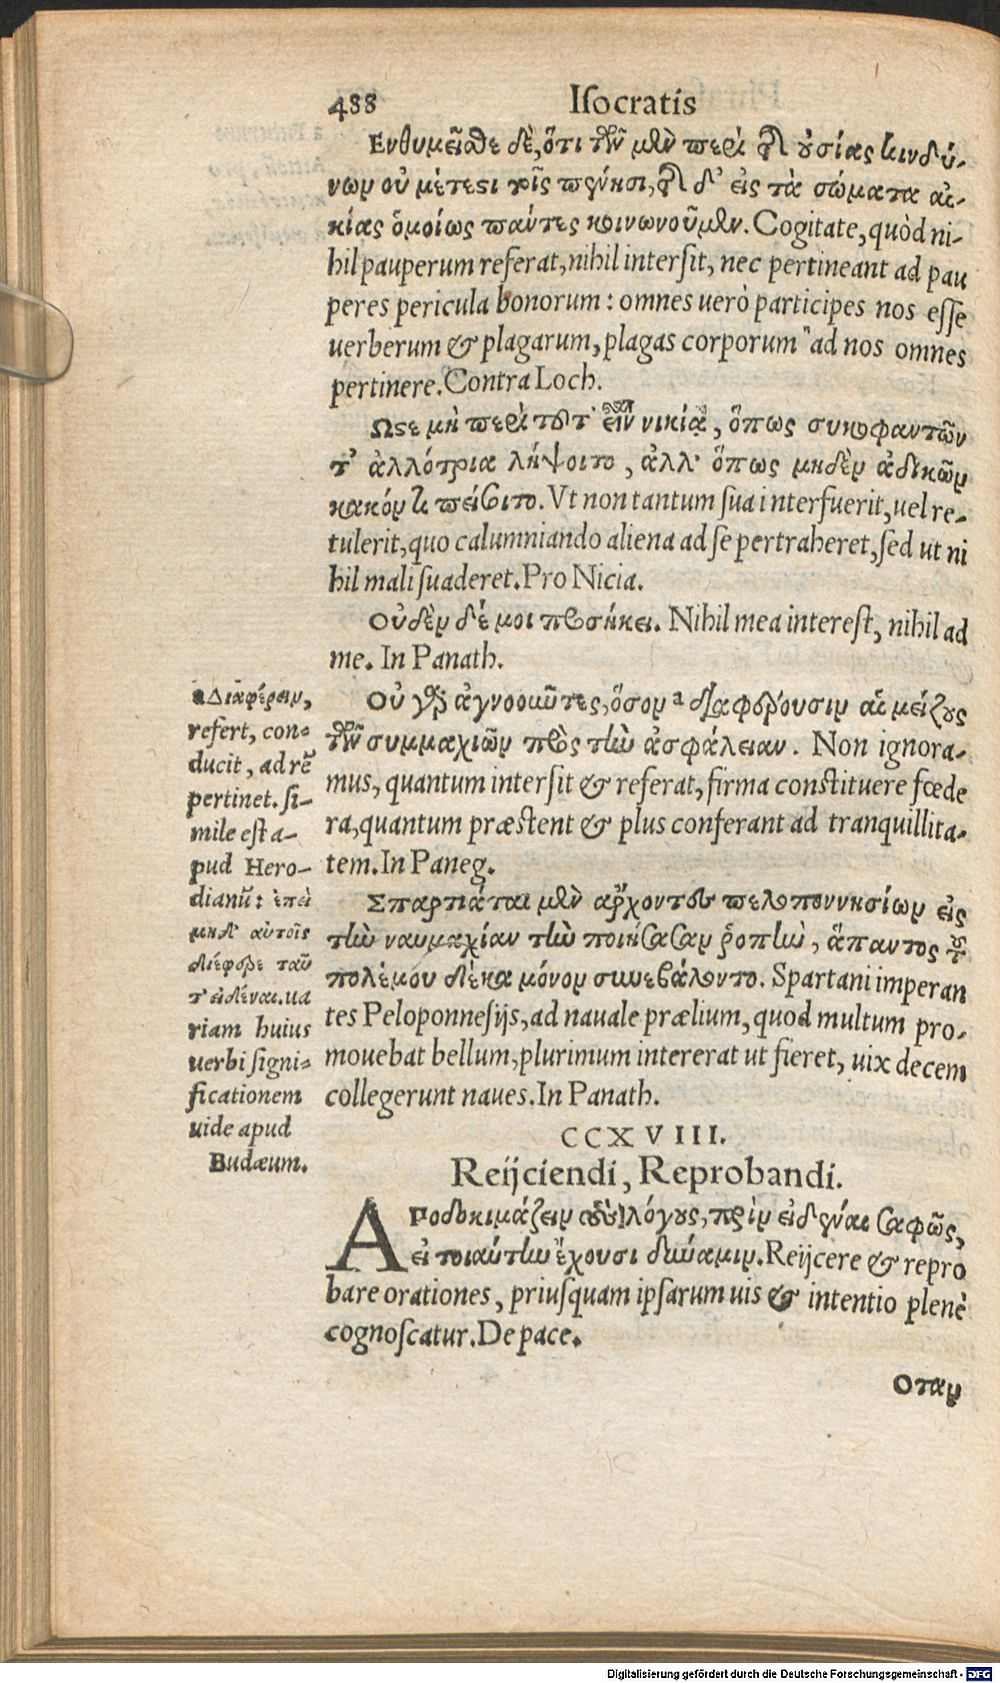 488 Iſocratis
Ενθυμεῖσθε δὲ, ὅτι τῶν μὲν περὶ τὰς οὐσίας κινδύ-
νων οὐ μέτεστι τοῖς πένησι, τῆς δ' εἰς τὰ σώματα αἰ-
κίας ὁμοίως πάντες κοινωνοῦμεν. Cogitate, quòd ni-
hil pauperum referat, nihil interſit, nec pertineant ad pau
peres pericula bonorum: omnes uerò participes nos eſſe
uerberum & plagarum, plagas corporum ad nos omnes
pertinere. Contra Loch.
Ωστε μὴ περὶ τοῦτ' εἶναι νικίᾳ, ὅπως συκοφαντῶν
τ' ἀλλότρια λήψοιτο, ἀλλ' ὅπως μηδὲν ἀδικῶν
κακόν τι πείσοιτο. Vt non tantum ſua interfuerit, uel re-
tulerit, quo calumniando aliena ad ſe pertraheret, ſed ut ni
hil mali ſuaderet. Pro Nicia.
Οὐδὲν δέ μοι προσήκει. Nihil mea intereſt, nihil ad
me. In Panath.
Οὐ γὰρ ἀγνοοῦντες, ὅσον a διαφέρουσιν αἱ μείζους
τῶν συμμαχιῶν πρὸς τὴν ἀσφάλειαν. Non ignora-
mus, quantum interſit & referat, firma conſtituere fœde
ra, quantum præſtent & plus conferant ad tranquillita-
tem. In Paneg.
Σπαρτιάται μὲν ἄρχοντες πελοποννησίων εἰς
τὴν ναυμαχίαν τὴν ποιήσασαν ῥοπὴν, ἅπαντος τοῦ
πολέμου δέκα μόνον συνεβάλοντο. Spartani imperan
tes Peloponneſijs, ad nauale prælium, quod multum pro-
mouebat bellum, plurimum intererat ut fieret, uix decem
collegerunt naues. In Panath.
a Διαφέρειν,
refert, con-
ducit, ad rẽ
pertinet. ſi-
mile eſt a-
pud Hero-
dianũ: ἐπεὶ
μηδ' αὐτοῖς
διέφερε ταῦ
τ' εἰδέναι. ua
riam huius
uerbi ſigni-
ficationem
uide apud
Budæum.
CCXVIII.
Reijciendi, Reprobandi.
Αποδοκιμάζειν τοὺς λόγους, πρὶν εἰδέναι σαφῶς,
εἰ τοιαύτην ἔχουσι δύναμιν. Reijcere & repro
bare orationes, priuſquam ipſarum uis & intentio plenè
cognoſcatur. De pace.
Οταν
Digitalisierung gefördert durch die Deutsche Forschungsgemeinschaft - DFG